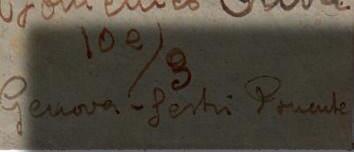 102/3
Genova-Sestri Ponente